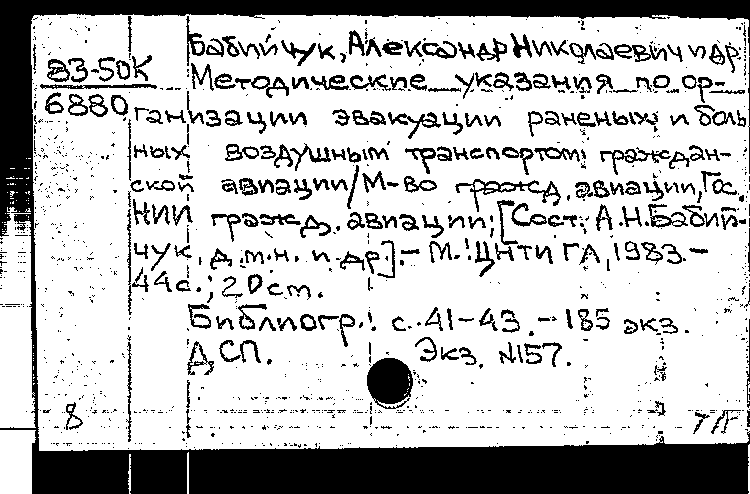 Бабийчук, Александр Николаевич и др.
ВЗ-50К
Методические указания по ор-
6880
ганизации эвакуации раненых и боль
ных воздушным транспортом граждан-
ской авиации/М-во гражд. авиации, Гос.
НИИ гражд. авиации; [Сост.: А.Н.Бабий-
чук, д.м.н. и др.].- М.: ЦНТИ ГА, 1983.-
44с.; 20см.
Библиогр.: с. 41-43. - 185 экз.
ДСП. Экз. №157.
8